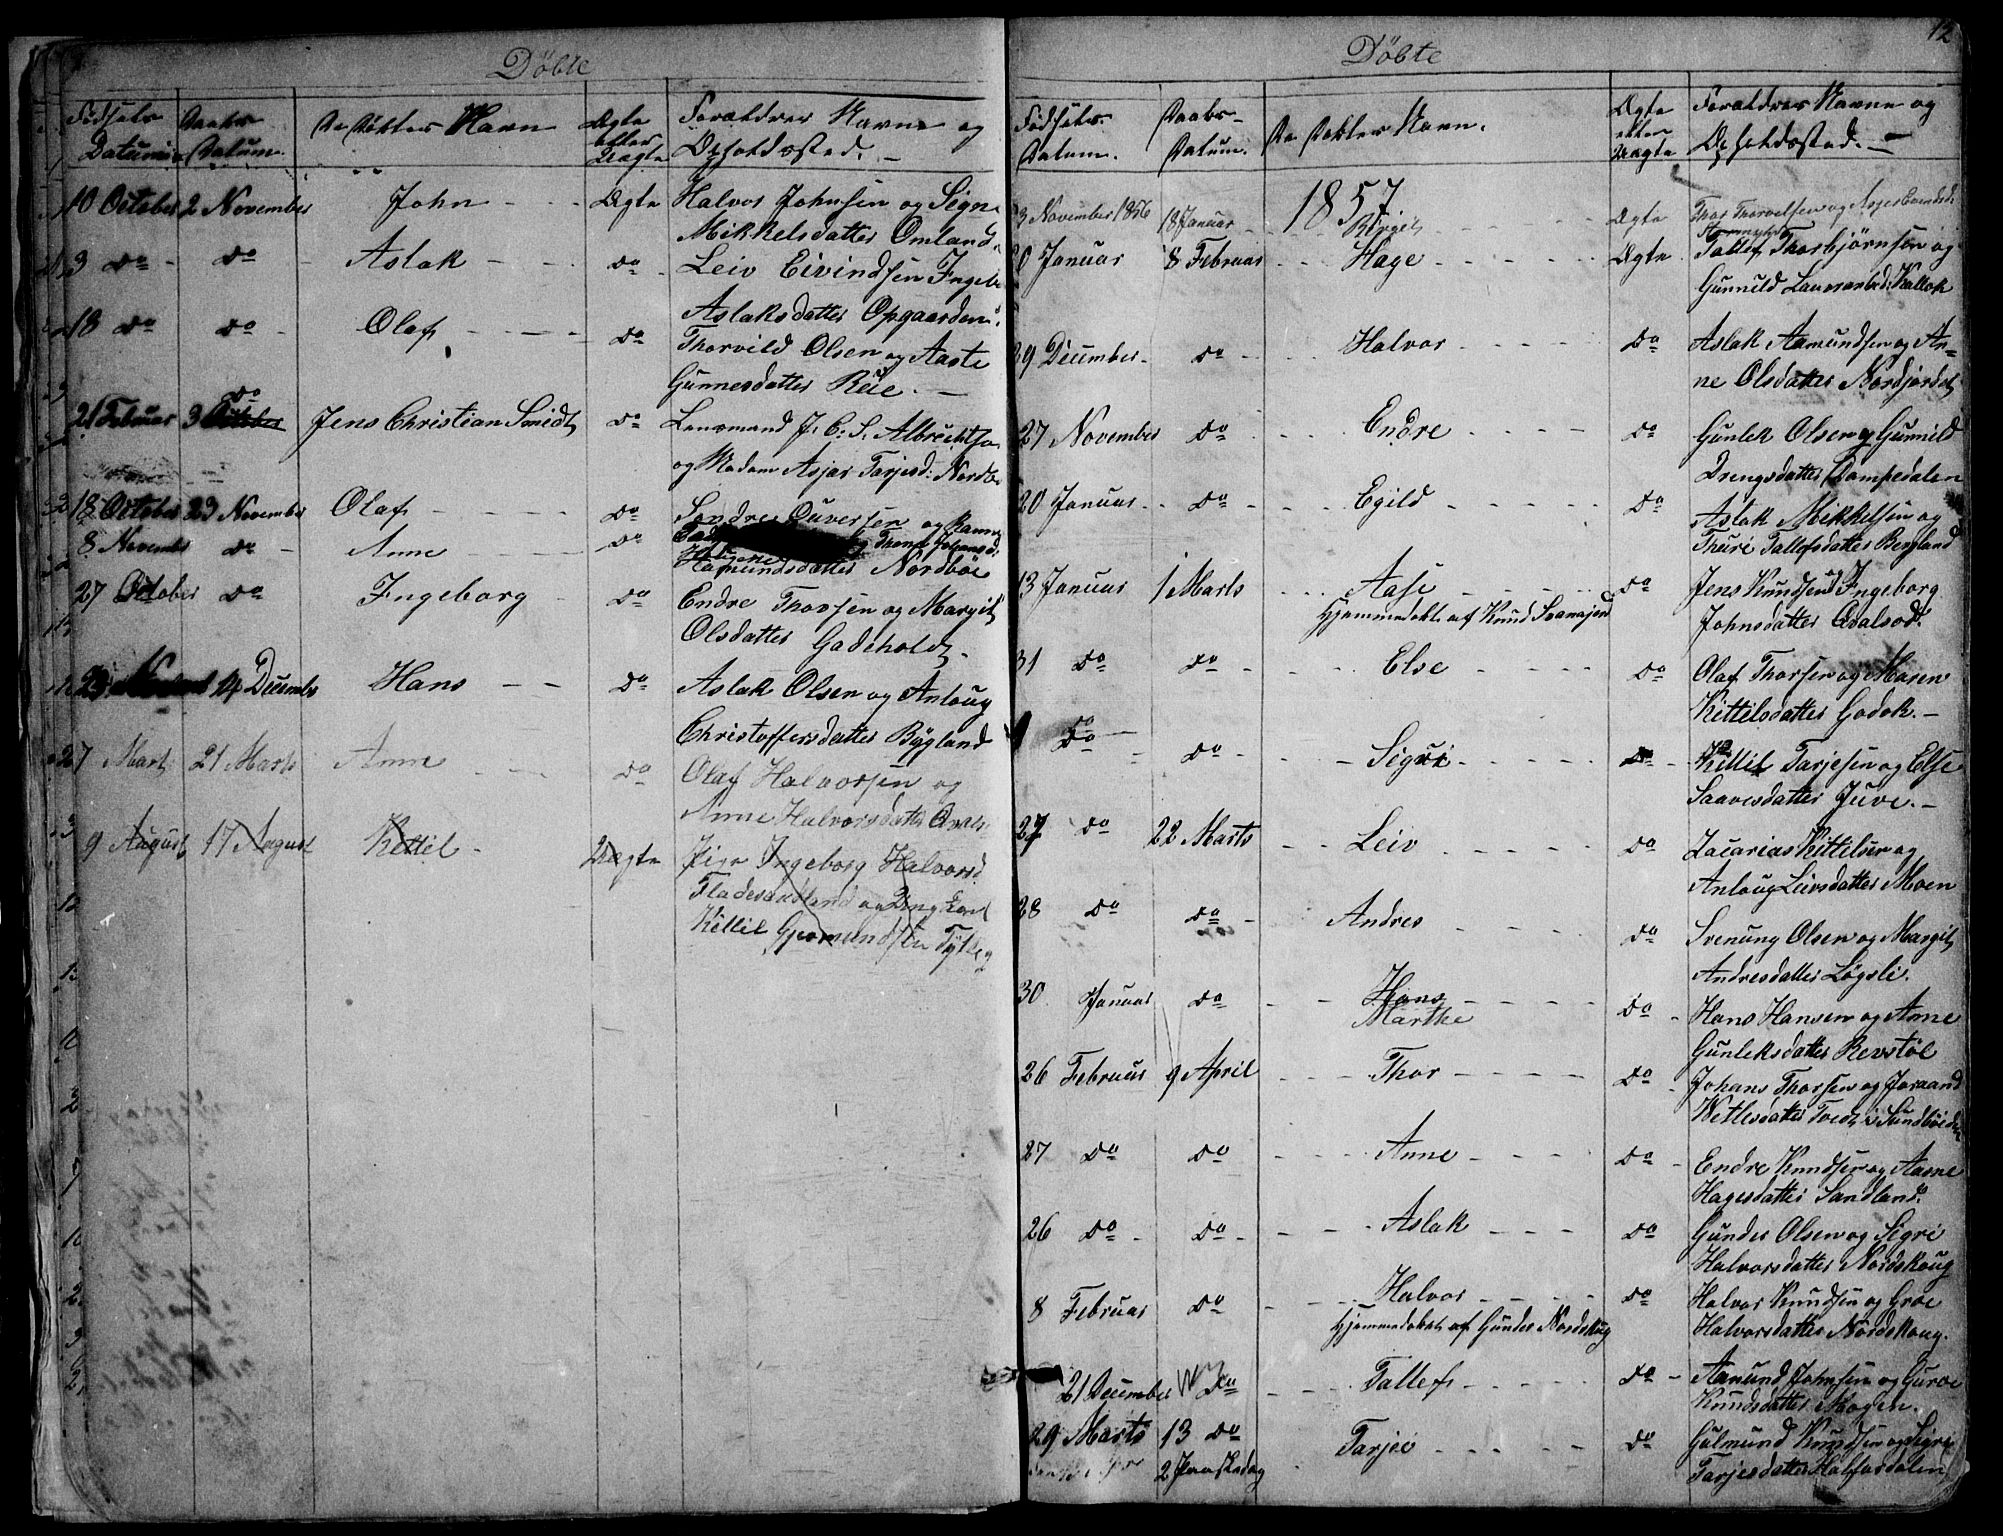 Döbte
Födsels Datum
Daabs Datum
De Döbtes Navn
Ægte eller Uægte
Forældres Navne og
Opholdssted. —
10 October 2 November John Ægte Halvor Johnsen og Signe
Mikkelsdatter Omland
3 do do Aslak do Leiv Eivindsen Ingeb
Aslaksdatter Opgaarden
18 do do Olaf do Thorvild Olsen og Aaste
Gunnesdatter Reie. —
21 Febuar 3 do Jens Christian Smidt do Lensmand J. C. S. Albrechtsen
og Madam Asjær Tarjesd: Nordbø
18 October 23 November Olaf do Sondre Ouversen og Ranni
8 Novembr do Anne do
Hamundsdatter Nordböe
27 October do Ingeborg do Endre Thorsen og Margit
Olsdatter Gadeholdt
14 Decembr Hans do Aslak Olsen og Anlaug
Christoffersdatter Bygland
27 Mart 21 Marts Anne do Olaf Halvorsen og
Anne Halvorsdatter
9 August 17 August Kittil Uægte Pige Ingeborg Halvorsd.
Fladesandland og Ungkarl
Kittil Gjermundsen
12
Döbte
Födsels-Datum.
Daabs-Datum.
De Döbtes Navn.
Ægte eller Uægte
Forældres Navne og
Opholdssted. —
1857
3 November 1856 18 Januar Birgit Ægte Thor Thorvelsen og
Januar 8 Februar Hage Ægte Tallef Thorbjörnsen og
Gunnild Kallok
29 December do Halvor do Aslak Aamundsen og An-
ne Olsdatter Nordjordet
27 November do Endre do Gunlek Olsen og Gunnild
Drengsdatter Dampedalen
20 Januar do Egild do Aslak Mikkelsen og
Thuri Tallefsdatter Bergland
13 Januar 1 Marts Aase do Jens Knudsen og Ingeborg
Hjemmedøbt af Knud Svanajord
Johnsdatter
31 do do Else do Olaf Thorsen og Maren
Kittelsdatter Godok. —
do do Sigri do Kittil Tarjesen og Else
Saavesdatter Juve. —
27 do 22 Marts Leiv do Zacarias Kittilsen og
Anloug Leivsdatter Moen
28 do do Andres do Svenung Olsen og Margit
Andresdatter Løgsli.
30 Januar do Hans
Marthe do Hans Hansen og Anne
Gunleksdatter Revstöl
26 Februar 9 April Thor do Johans Thorsen og Joraand
Wetlesdatter Tvedt i Sundböi
27 do do Anne do Endre Knudsen og Aasne
Hagesdatter Sandland.
26 do do Aslak do Gunder Olsen og Sigri
Halvorsdatter Nordskoug
8 Februar do Halvor do Halvor Knudsen og Groe
Hjemmedobt af Gunder Nordskoug
Halvorsdatter Nordskoug.
21 December do Tallef do Aanund Johnsen og Guroe
Knudsdatter Mogen.
29 Marts 13 do
2 Paaskedag Tarjei do Gulmund Knudsen og Sigri
Tarjesdatter Halfardalen